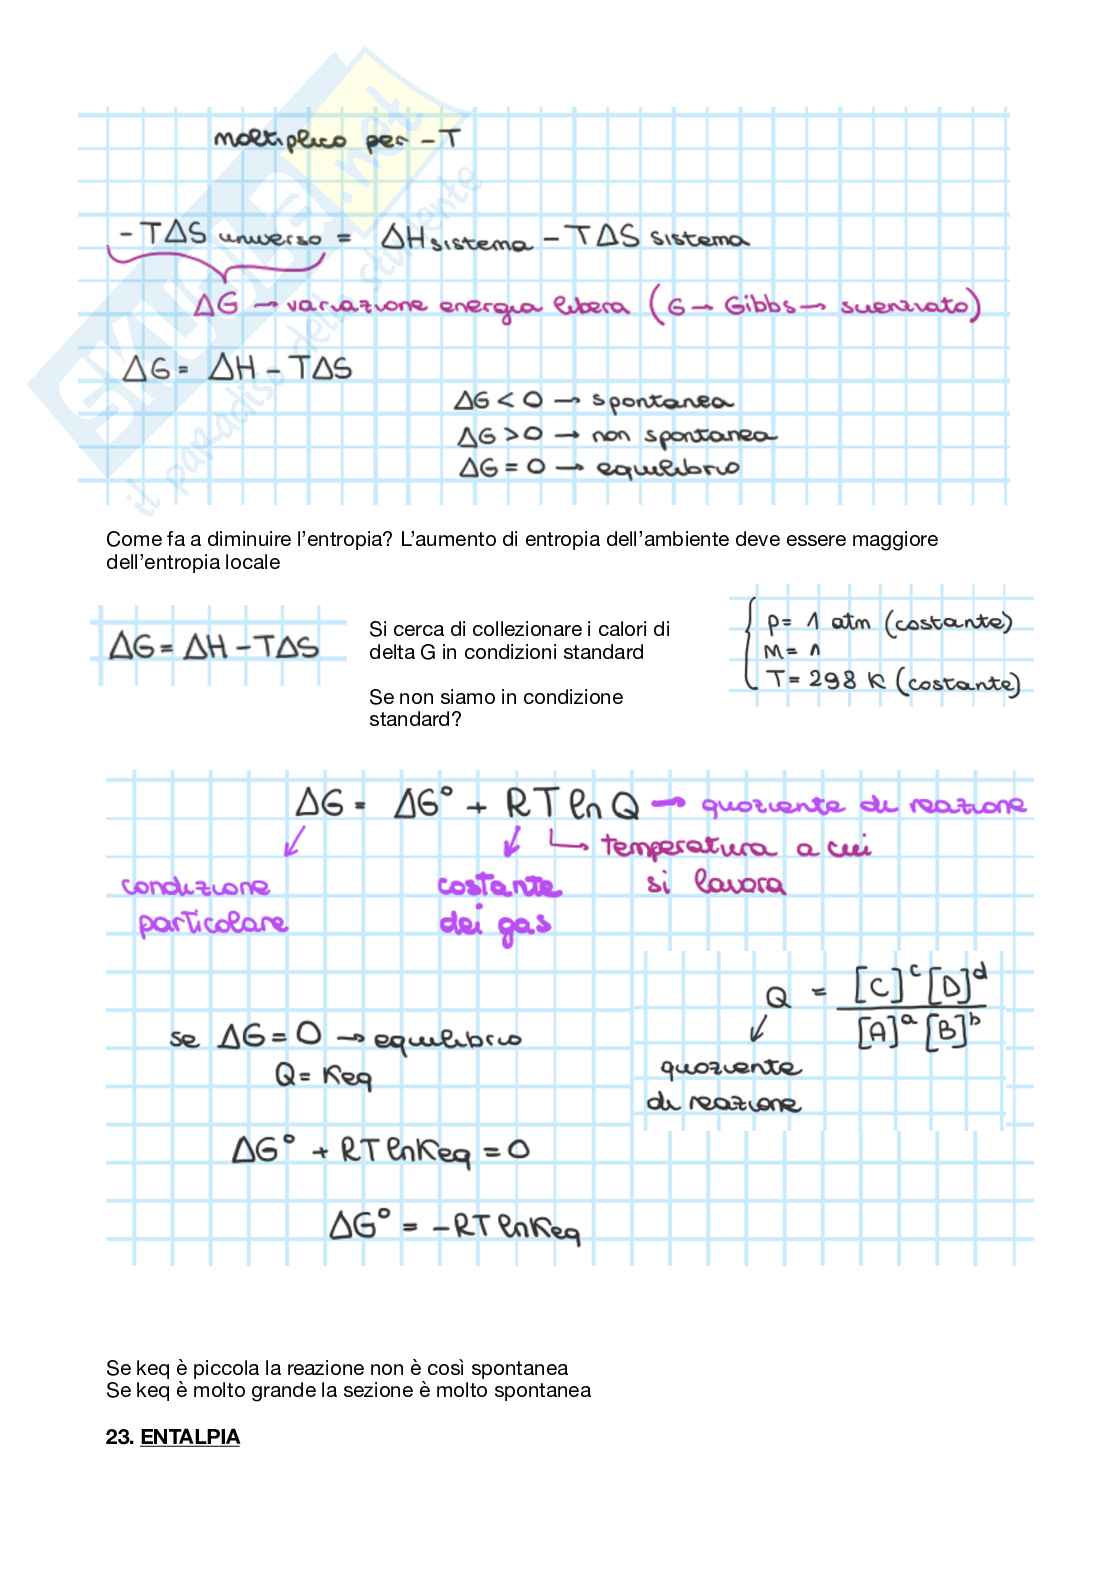 moltiplico per -T
-TΔS universo = ΔH sistema - TΔS sistema
ΔG → variazione energia libera (G → Gibbs → scienziato)
ΔG = ΔH - TΔS
ΔG < 0 → spontanea
ΔG > 0 → non spontanea
ΔG = 0 → equilibrio
SKUOLA.net
il paradiso dello studente
Come fa a diminuire l'entropia? L'aumento di entropia dell'ambiente deve essere maggiore
dell'entropia locale
ΔG = ΔH - TΔS
Si cerca di collezionare i calori di
delta G in condizioni standard
Se non siamo in condizione
standard?
p = 1 atm (costante)
M = 1
T = 298 K (costante)
ΔG = ΔG° + RT ln Q → quoziente di reazione
temperatura a cui
si lavora
condizione
particolare
costante
dei gas
Q = [C]^c [D]^d / [A]^a [B]^b
quoziente
di reazione
se ΔG = 0 → equilibrio
Q = Keq
ΔG° + RT ln Keq = 0
ΔG° = -RT ln Keq
Se keq è piccola la reazione non è così spontanea
Se keq è molto grande la sezione è molto spontanea
23. ENTALPIA